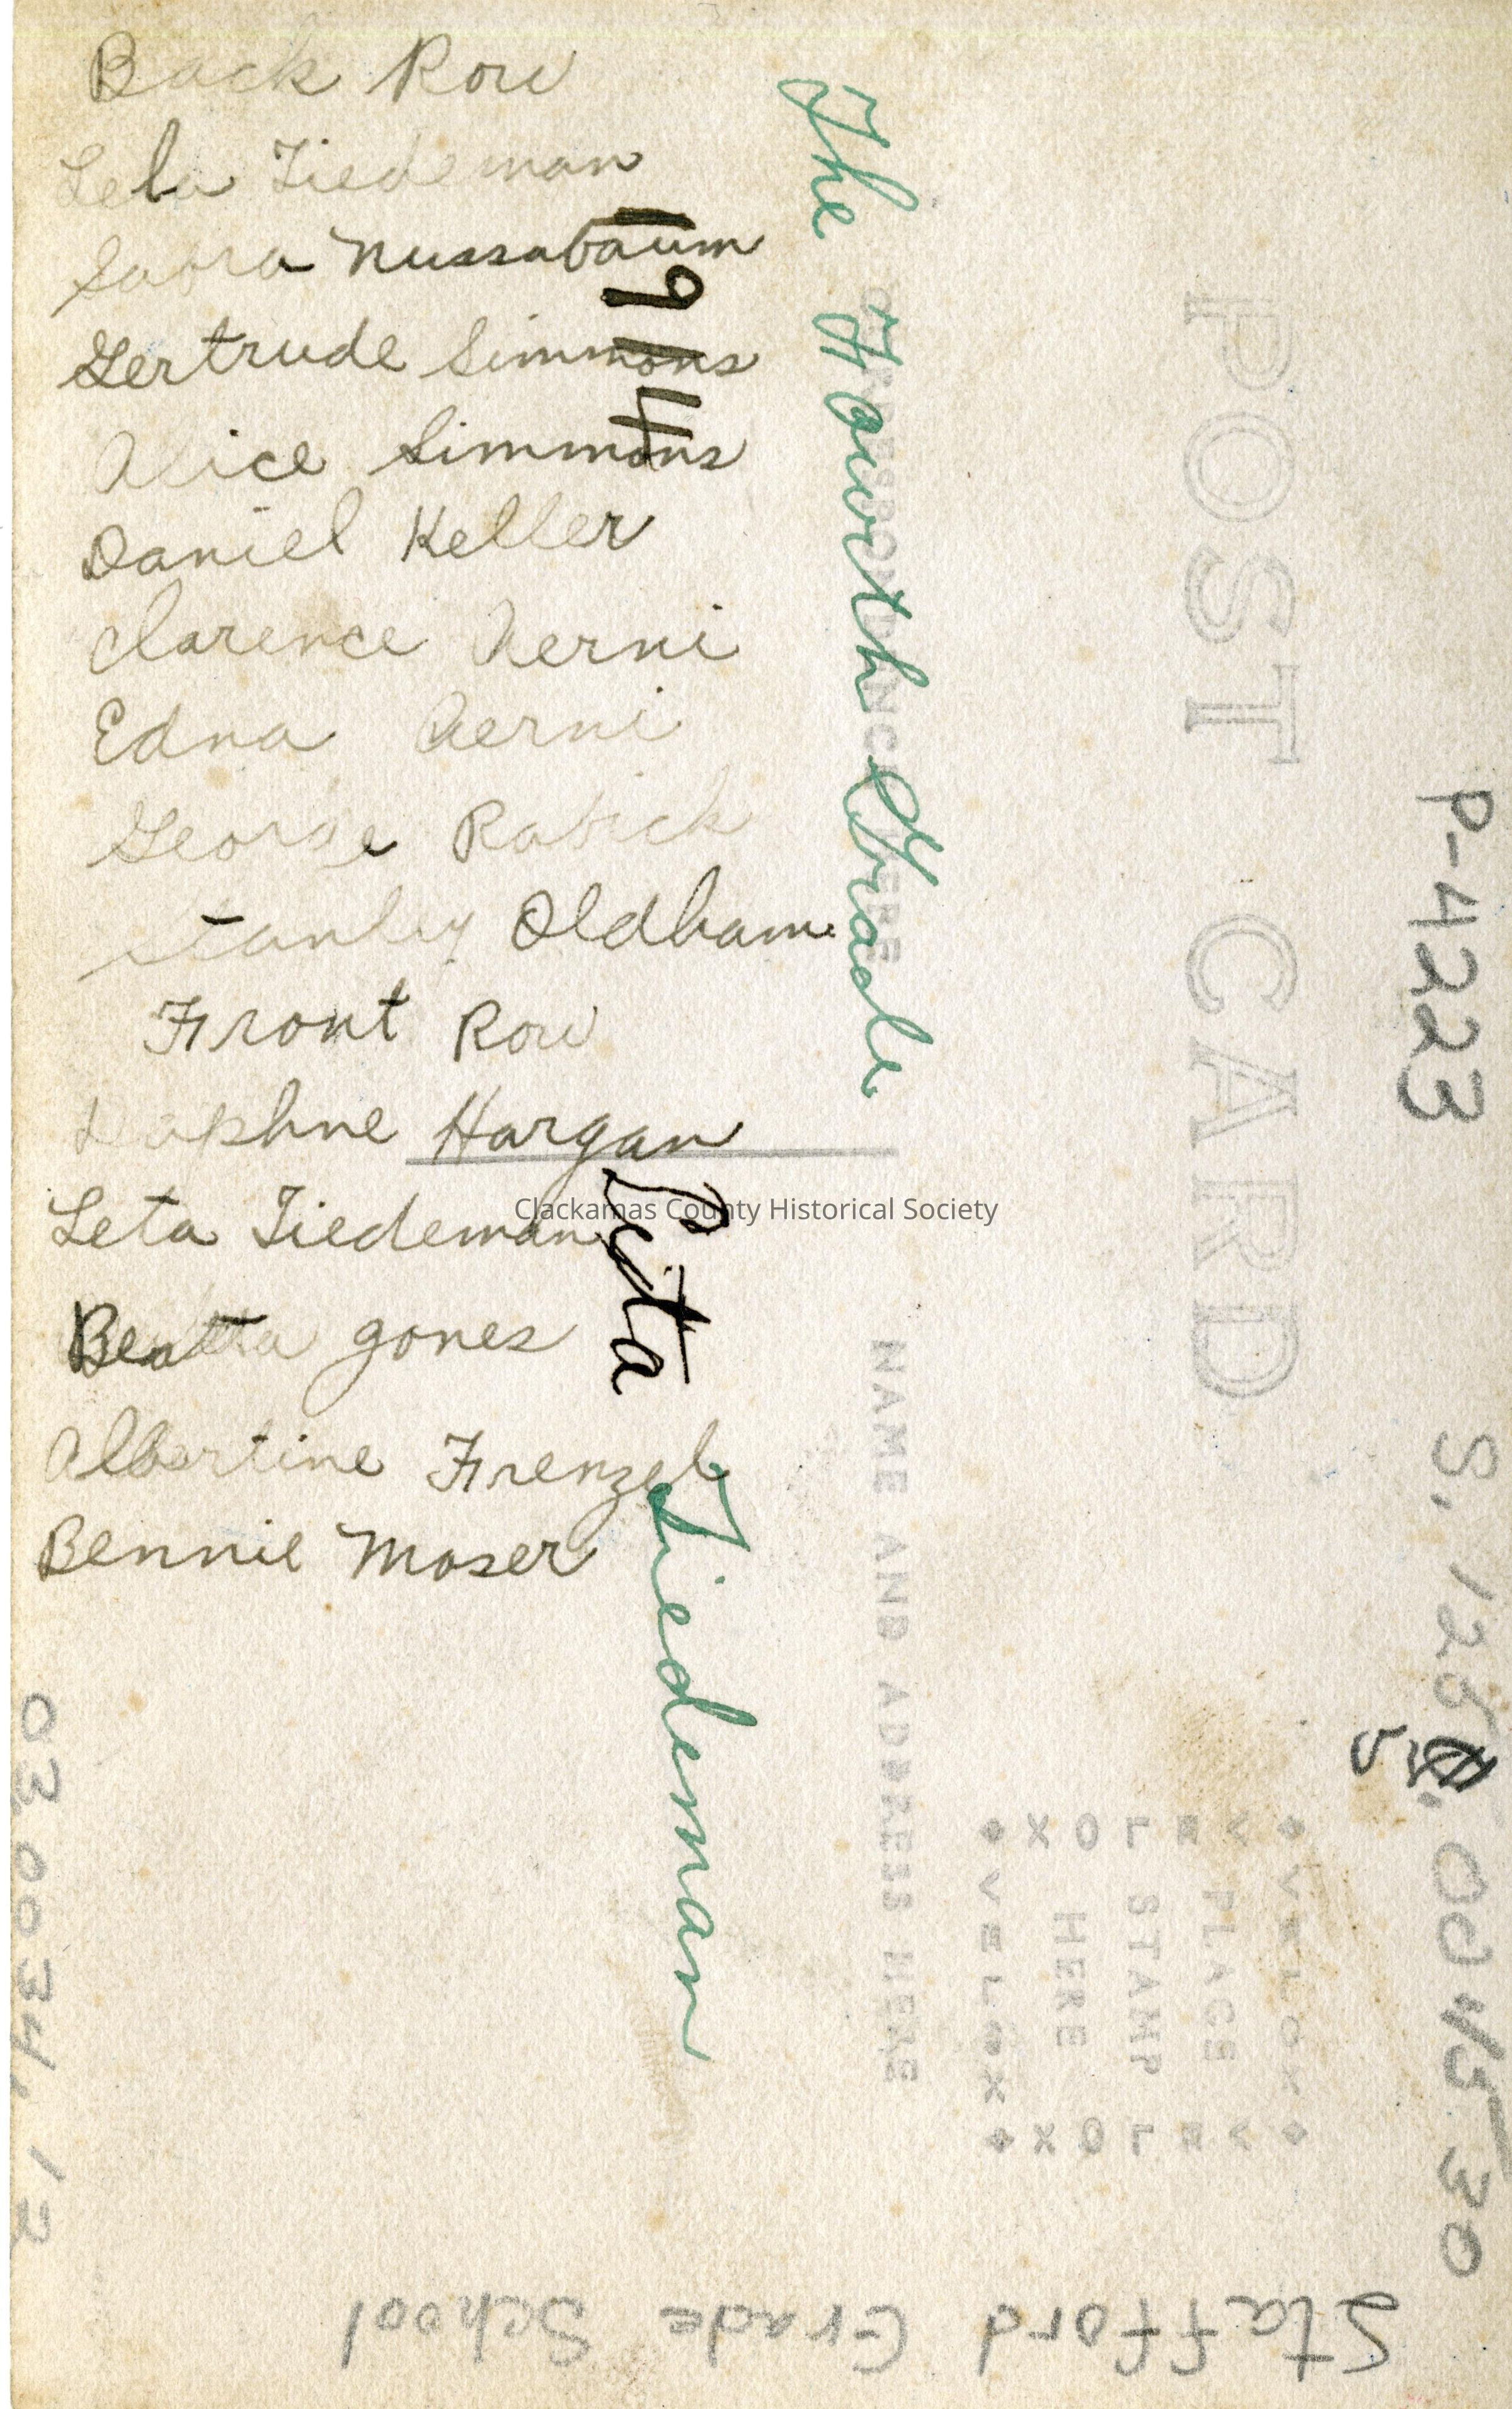 Back Row
Lela Tiedeman
Sabra Nussabaum
Gertrude Simmons
Alice Simmons
Daniel Keller
Clarence Aerni
Edna Aerni
George Rabick
Stanley Oldham
Front Row
Daphne Hargan
Leta Tiedeman
Beatta Jones
Albertine Frenzel
Bennie Moser
1914
The Fourth Grade
Leta Tiedeman
Clackamas County Historical Society
POST CARD
CORRESPONDENCE HERE
NAME AND ADDRESS HERE
PLACE
STAMP
HERE
VELOX
VELOX
VELOX
VELOX
P-4223
03.0034.12
Stafford Grade School